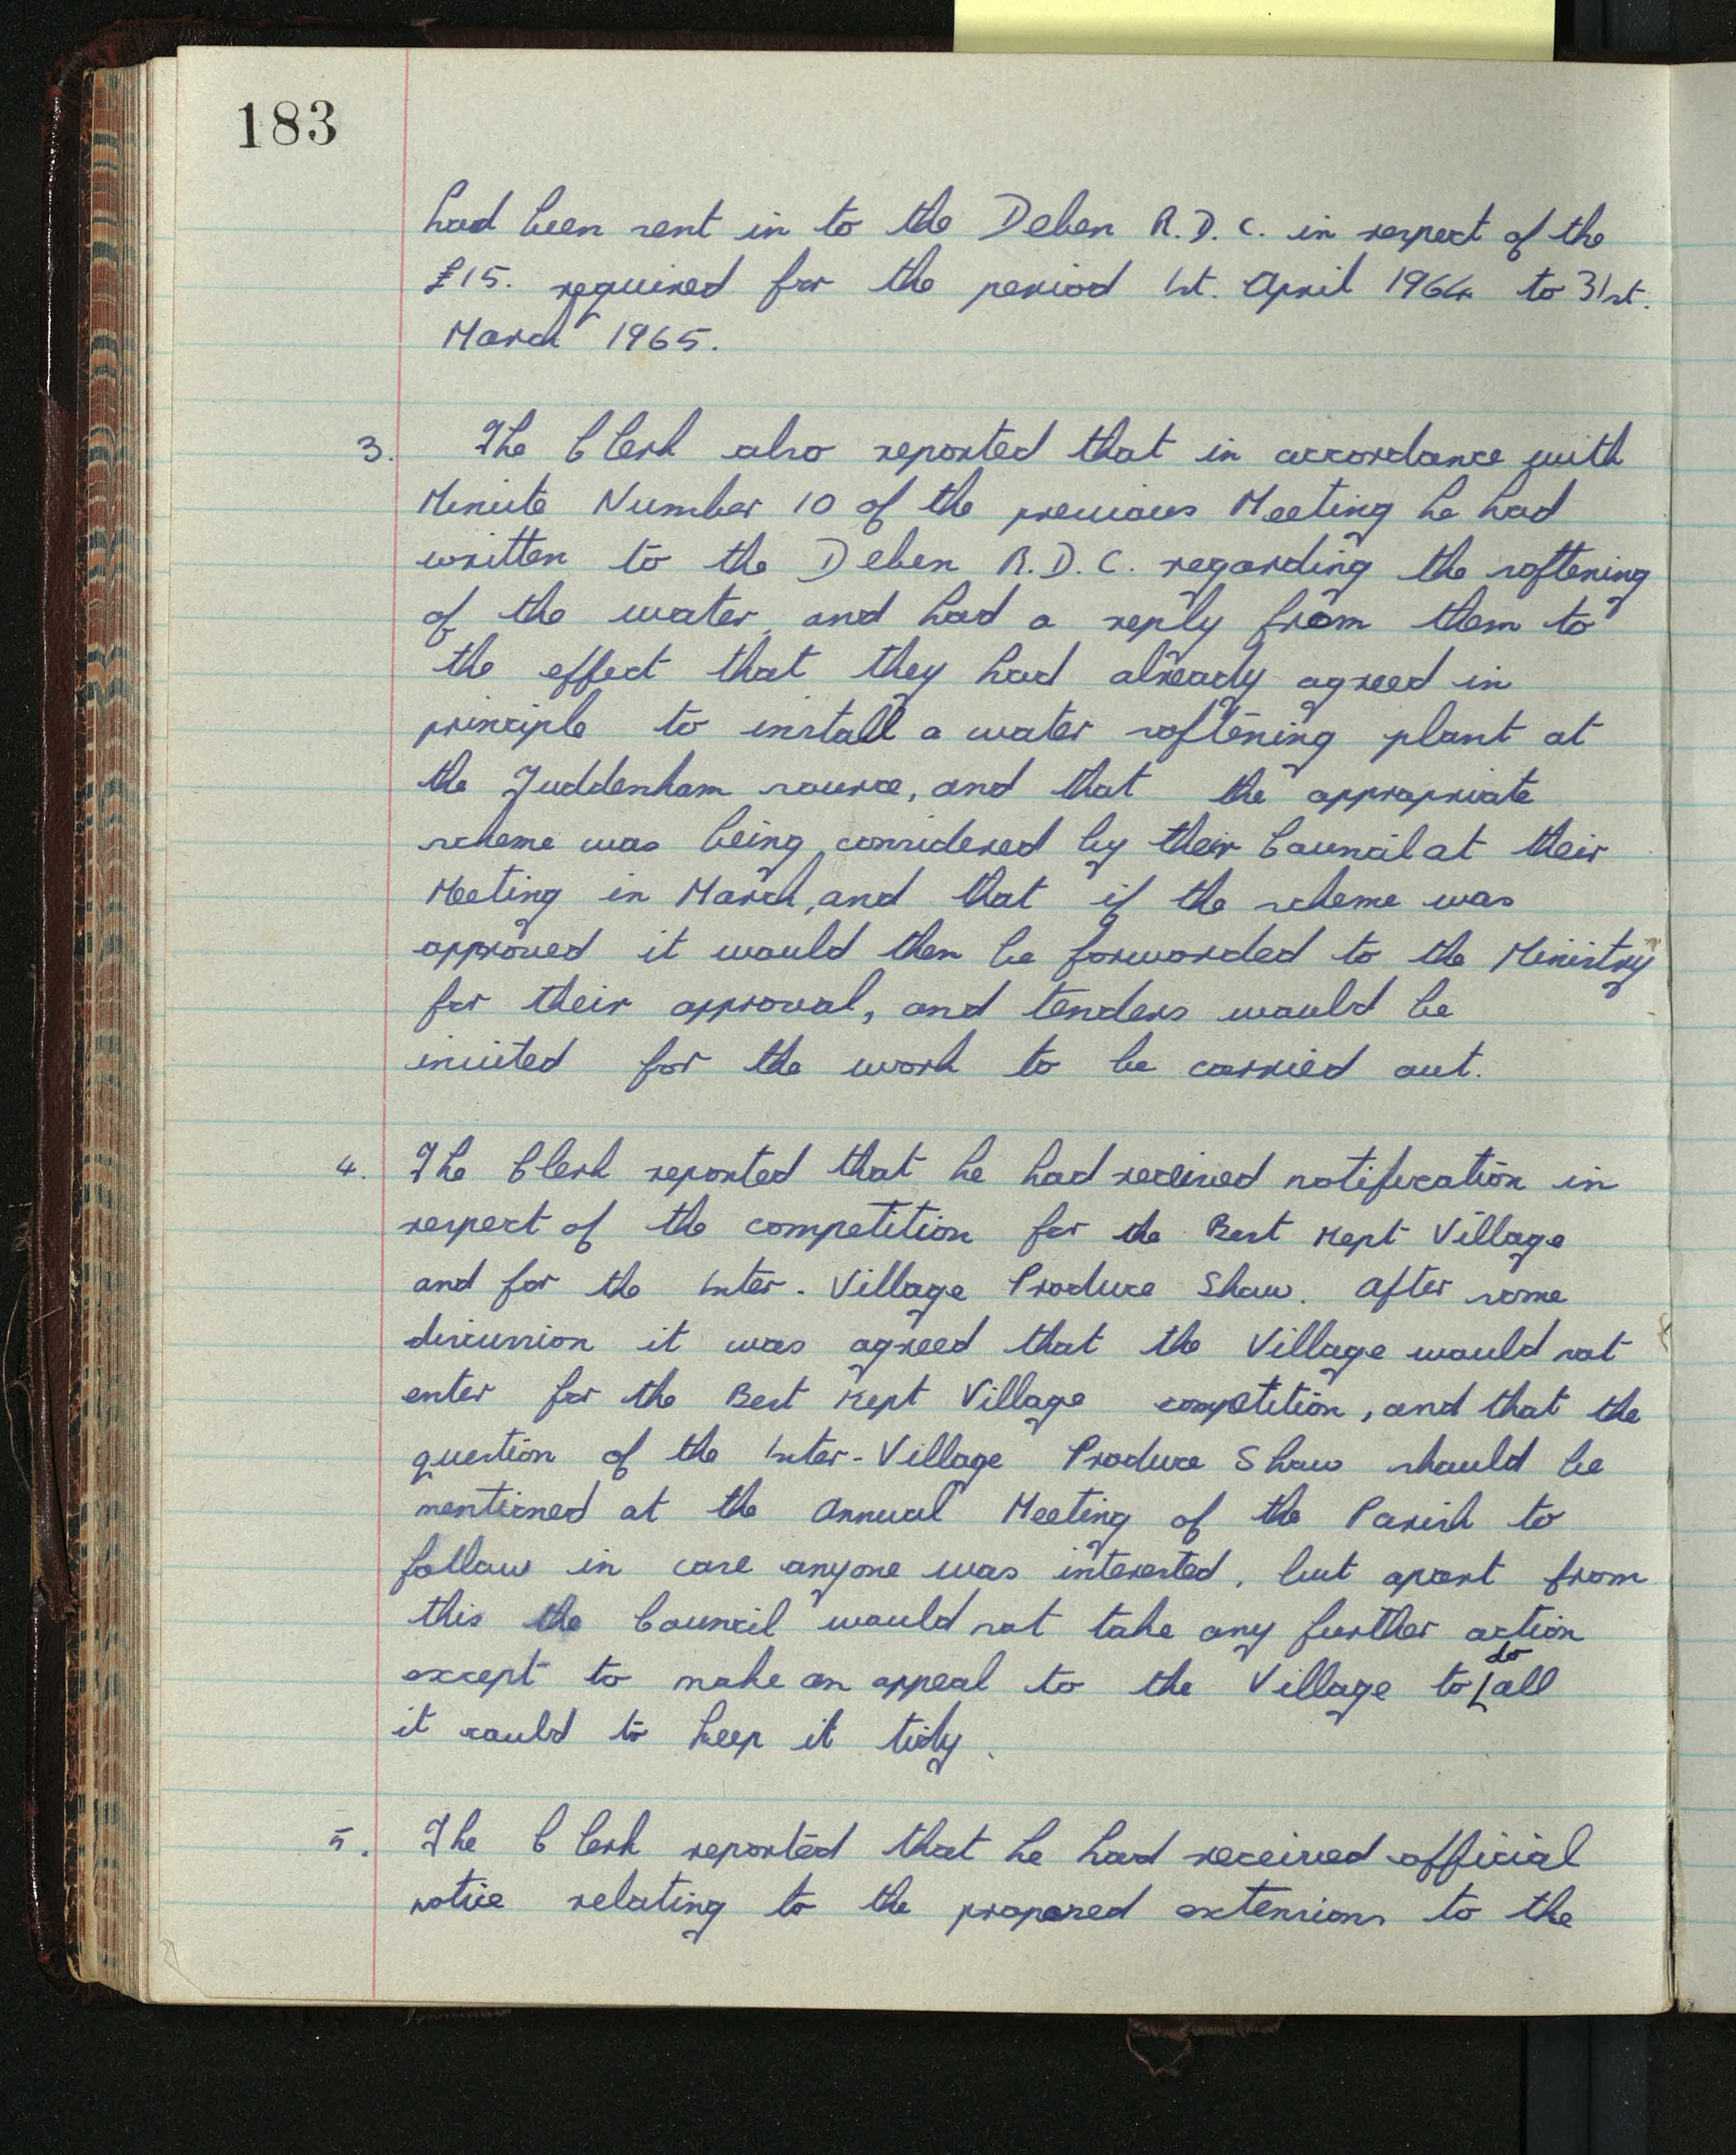 183
had been sent in to the Deben R.D.C. in respect of the
£15. required for the period 1st. April 1964 to 31st.
March 1965.
3. The Clerk also reported that in accordance with
Minute Number 10 of the previous Meeting he had
written to the Deben R.D.C. regarding the softening
of the water, and had a reply from them to
the effect that they had already agreed in
principle to install a water softening plant at
the Tuddenham source, and that the appropriate
scheme was being considered by their Council at their
Meeting in March, and that if the scheme was
approved it would then be forwarded to the Ministry
for their approval, and tenders would be
invited for the work to be carried out.
4. The Clerk reported that he had received notification in
respect of the competition for the Best Kept Village
and for the Inter-Village Produce Show. After some
discussion it was agreed that the Village would not
enter for the Best Kept Village competition, and that the
question of the Inter-Village Produce Show should be
mentioned at the Annual Meeting of the Parish to
follow in case anyone was interested, but apart from
this the Council would not take any further action
except to make an appeal to the Village to do all
it could to keep it tidy.
5. The Clerk reported that he had received official
notice relating to the proposed extensions to the